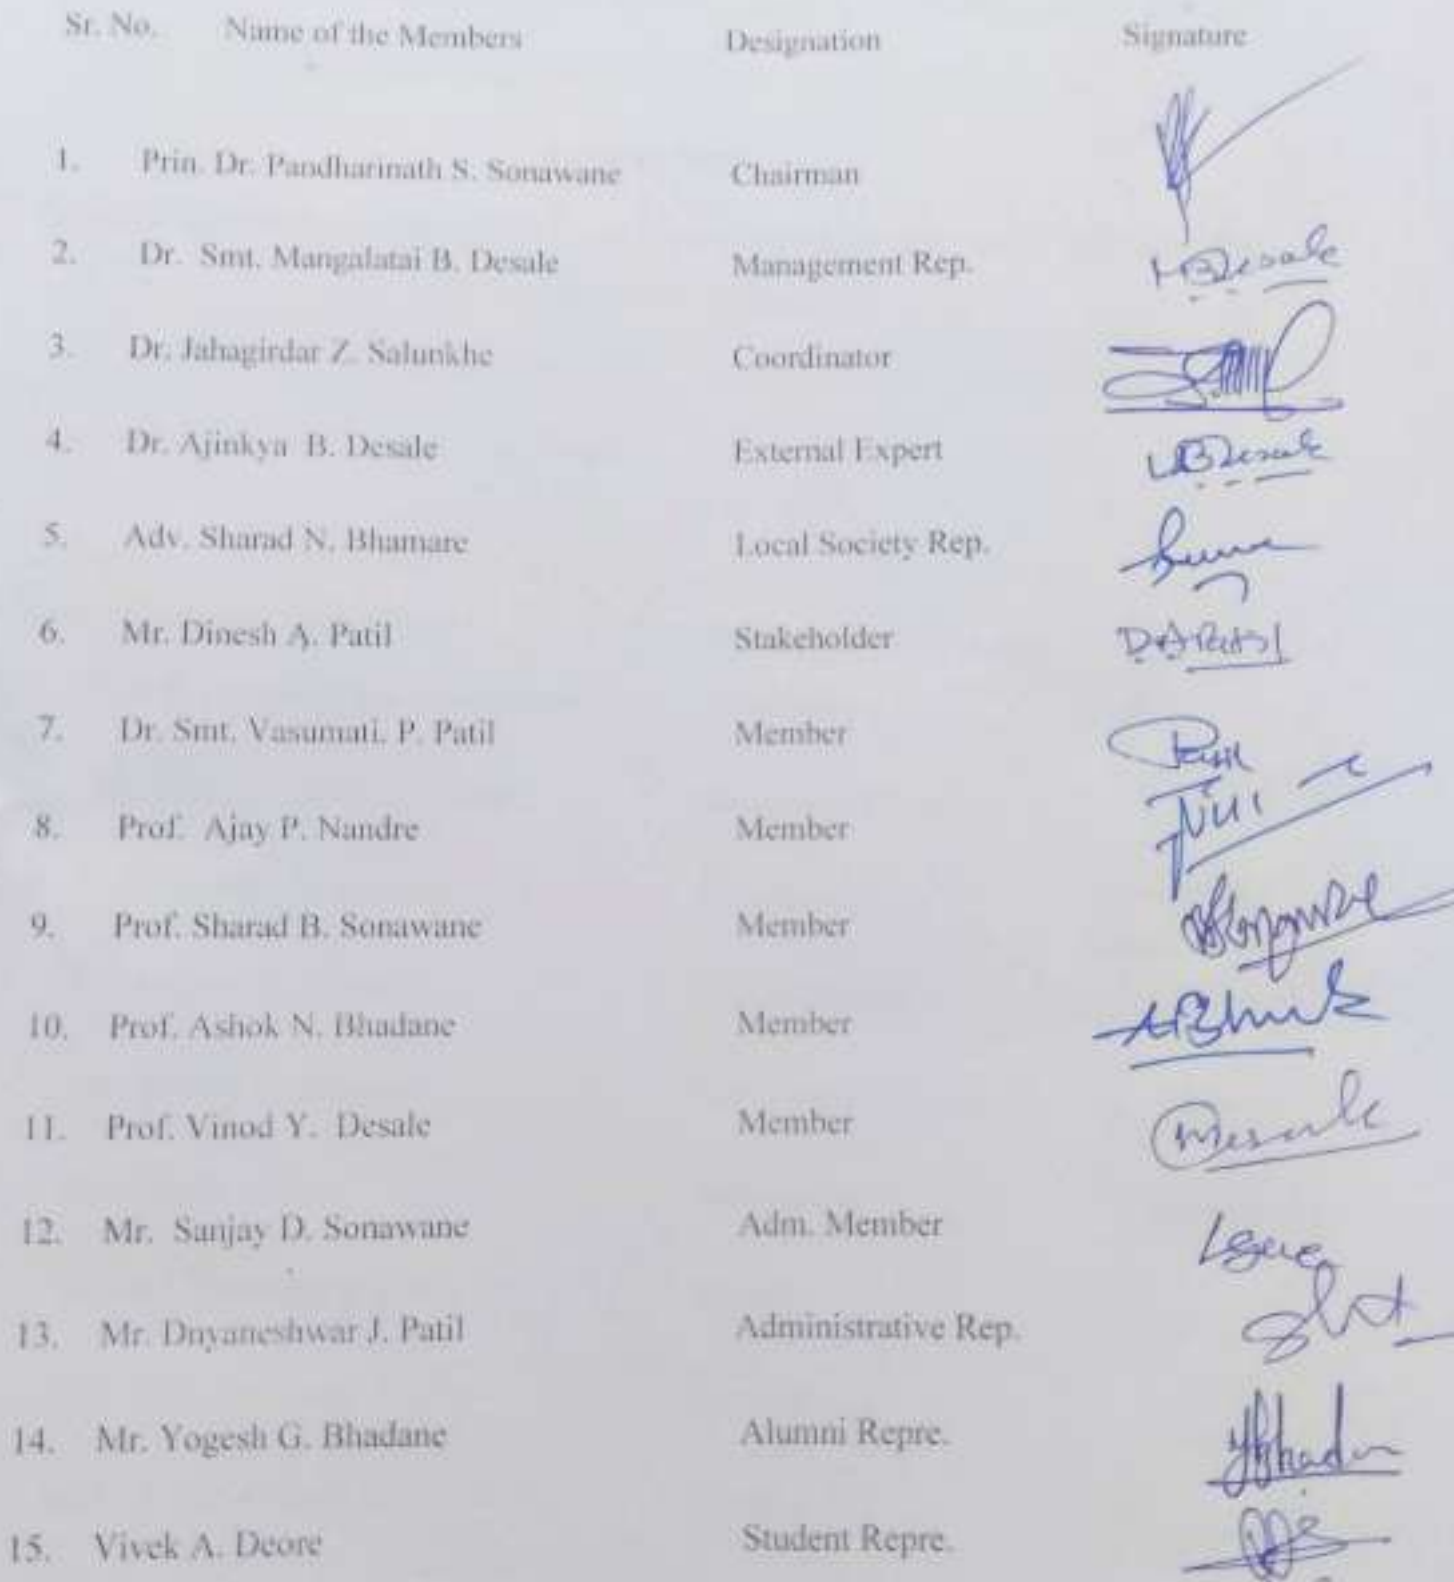 Sr. No. Name of the Members Designation Signature
1. Prin. Dr. Pandharinath S. Sonawane Chairman
2. Dr. Smt. Mangalatai B. Desale Management Rep. MBDesale
3. Dr. Jahagirdar Z. Salunkhe Coordinator
4. Dr. Ajinkya B. Desale External Expert ABDesale
5. Adv. Sharad N. Bhamare Local Society Rep.
6. Mr. Dinesh A. Patil Stakeholder D.A.Patil
7. Dr. Smt. Vasumati. P. Patil Member
8. Prof. Ajay P. Nandre Member
9. Prof. Sharad B. Sonawane Member
10. Prof. Ashok N. Bhadane Member
11. Prof. Vinod Y. Desale Member
12. Mr. Sanjay D. Sonawane Adm. Member
13. Mr. Dnyaneshwar J. Patil Administrative Rep.
14. Mr. Yogesh G. Bhadane Alumni Repre.
15. Vivek A. Deore Student Repre.